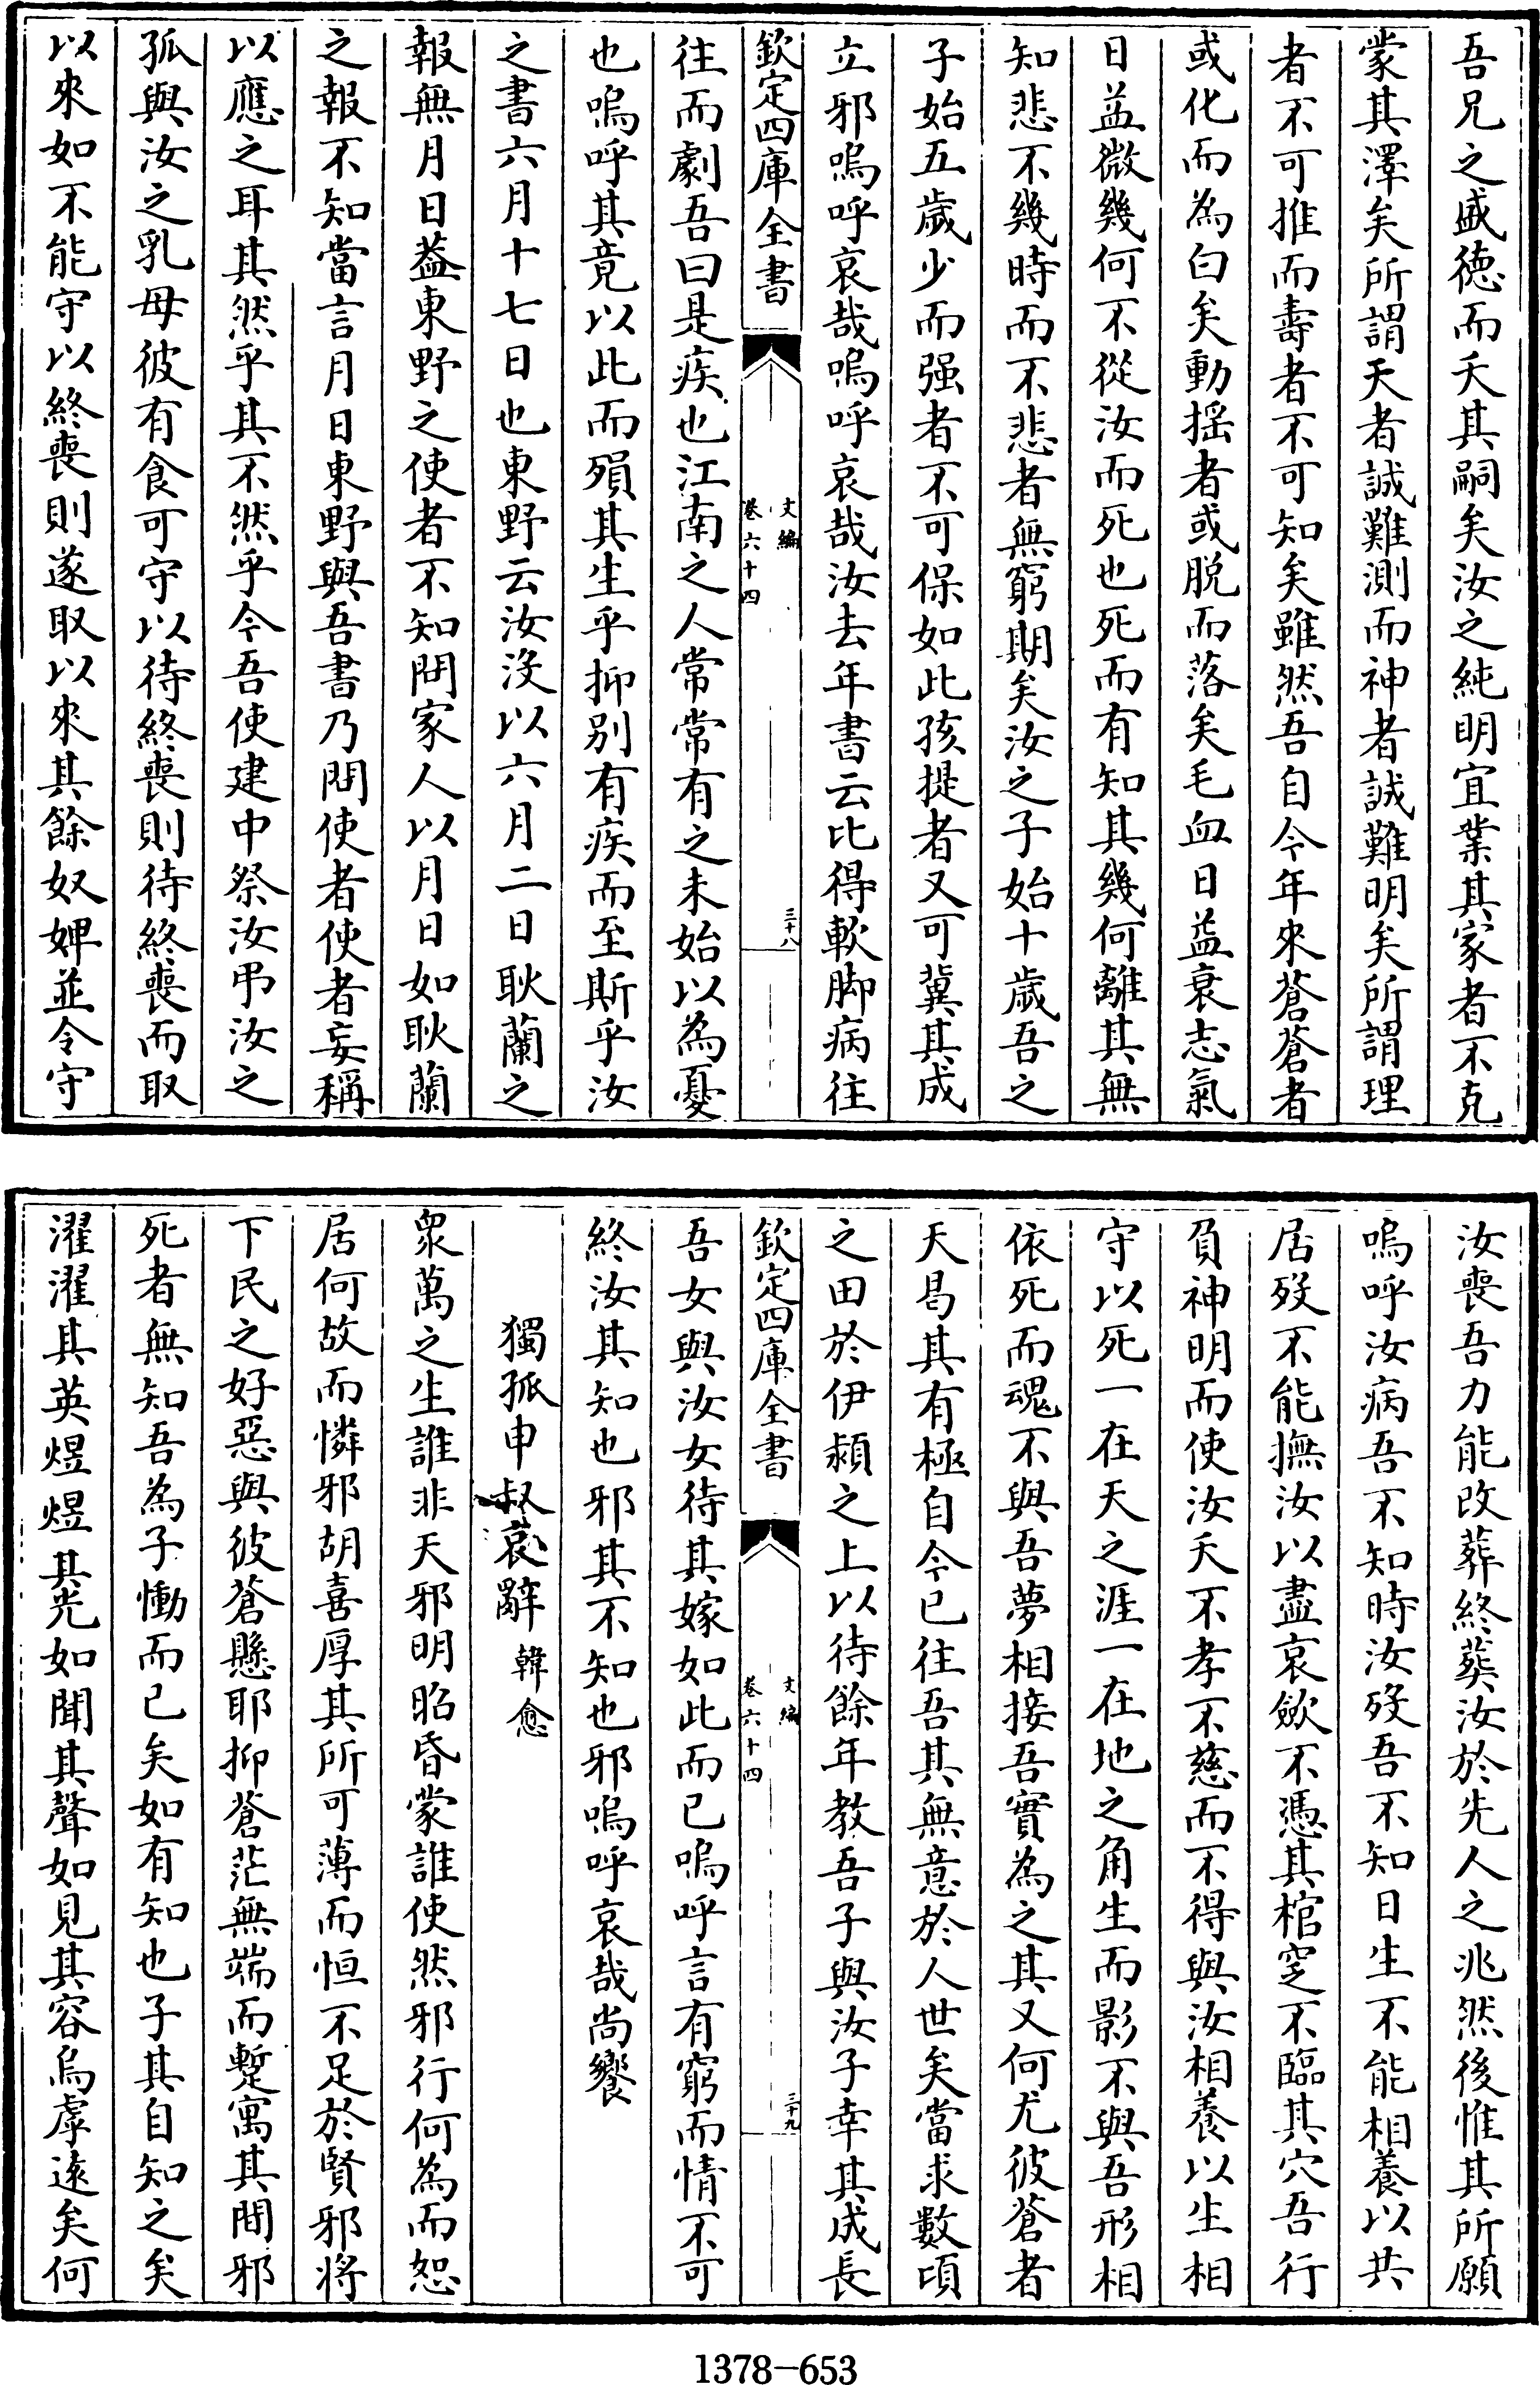 吾兄之盛徳而夭其嗣矣汝之純明宜業其家者不克
蒙其澤矣所謂天者誠難測而神者誠難明矣所謂理
者不可推而壽者不可知矣雖然吾自今年來蒼蒼者
或化而為白矣動揺者或脱而落矣毛血日益衰志氣
日益微幾何不從汝而死也死而有知其幾何離其無
知悲不幾時而不悲者無窮期矣汝之子始十歲吾之
子始五歲少而强者不可保如此孩提者又可冀其成
立邪嗚呼哀哉嗚呼哀哉汝去年書云比得軟脚病往
欽定四庫全書
文編
卷六十四
三十八
往而劇吾曰是疾也江南之人常常有之未始以為憂
也嗚呼其竟以此而殞其生乎抑别有疾而至斯乎汝
之書六月十七日也東野云汝没以六月二日耿蘭之
報無月日葢東野之使者不知問家人以月日如耿蘭
之報不知當言月日東野與吾書乃問使者使者妄稱
以應之耳其然乎其不然乎今吾使建中祭汝弔汝之
孤與汝之乳母彼有食可守以待終喪則待終喪而取
以來如不能守以終喪則遂取以來其餘奴婢並令守
汝喪吾力能改葬終葬汝於先人之兆然後惟其所願
嗚呼汝病吾不知時汝歿吾不知日生不能相養以共
居歿不能撫汝以盡哀斂不憑其棺窆不臨其穴吾行
負神明而使汝夭不孝不慈而不得與汝相養以生相
守以死一在天之涯一在地之角生而影不與吾形相
依死而魂不與吾夢相接吾實為之其又何尤彼蒼者
天曷其有極自今已往吾其無意於人世矣當求數頃
之田於伊潁之上以待餘年教吾子與汝子幸其成長
欽定四庫全書
文編
卷六十四
三十九
吾女與汝女待其嫁如此而已嗚呼言有窮而情不可
終汝其知也邪其不知也邪嗚呼哀哉尚饗
獨孤申叔哀辭 韓愈
衆萬之生誰非天邪明昭昏蒙誰使然邪行何為而怒
居何故而憐邪胡喜厚其所可薄而恒不足於賢邪將
下民之好惡與彼蒼懸耶抑蒼茫無端而蹔寓其間邪
死者無知吾為子慟而已矣如有知也子其自知之矣
濯濯其英煜煜其光如聞其聲如見其容烏虖遠矣何
1378-653